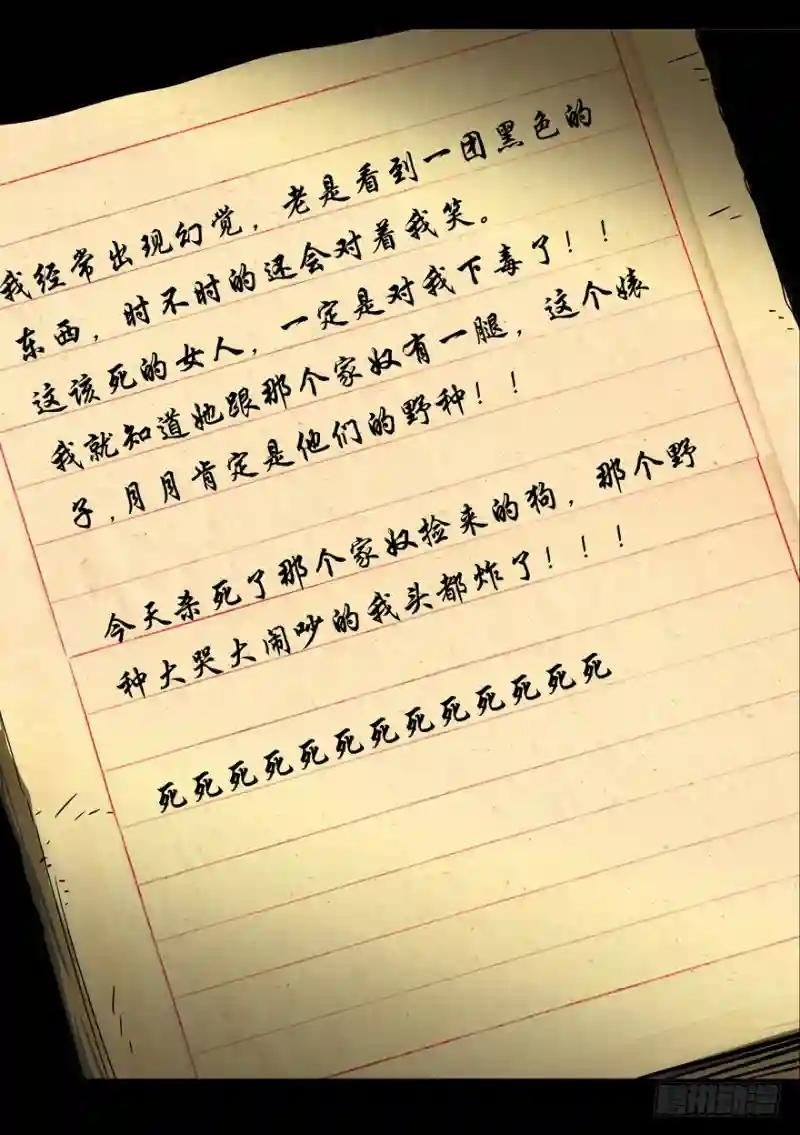 我经常出现幻觉，老是看到一团黑色的
东西，时不时的还会对着我笑。
这该死的女人，一定是对我下毒了！！
我就知道她跟那个家奴有一腿，这个婊
子，月月肯定是他们的野种！！
今天杀死了那个家奴捡来的狗，那个野
种大哭大闹吵的我头都炸了！！！
死死死死死死死死死死死死死
腾讯动漫